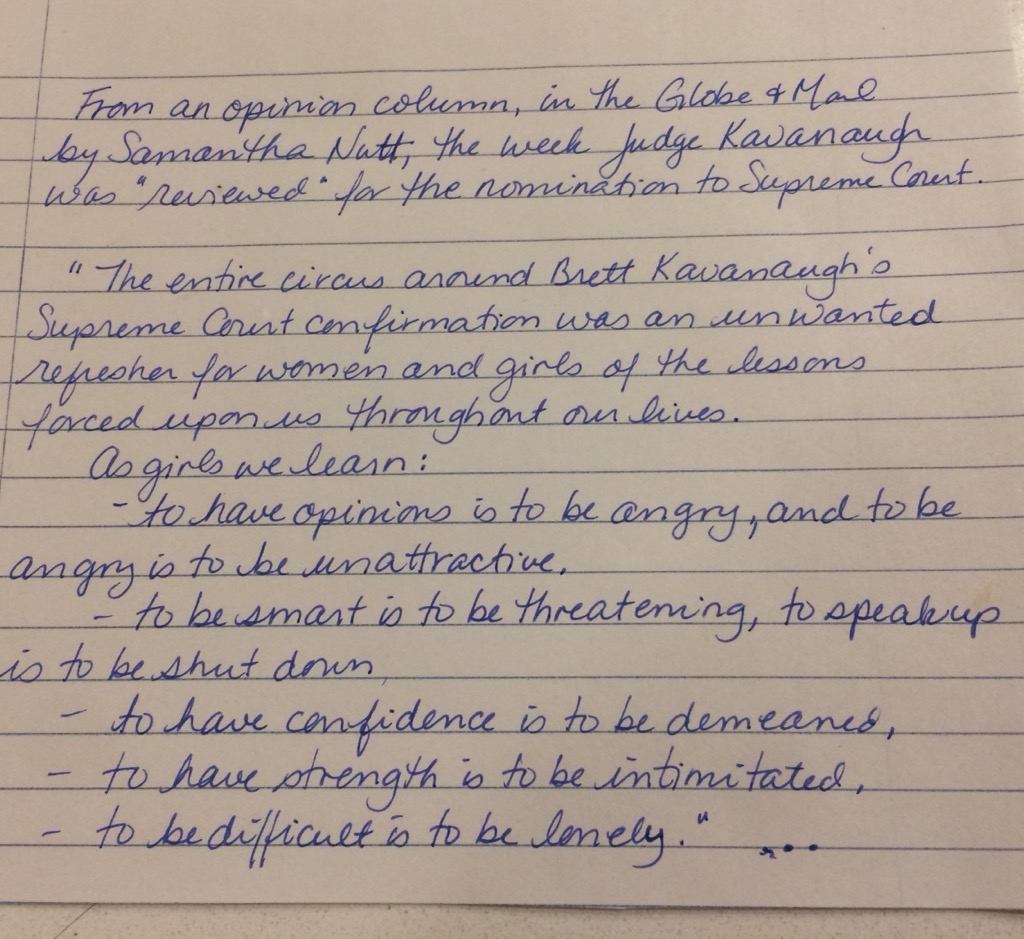 From an opinion column, in the Globe & Mail
by Samantha Nutt, the week Judge Kavanaugh
was "reviewed" for the nomination to Supreme Court.
"The entire circus around Brett Kavanaugh's
Supreme Court confirmation was an unwanted
refresher for women and girls of the lessons
forced upon us throughout our lives.
As girls we learn:
- to have opinions is to be angry, and to be
angry is to be unattractive,
- to be smart is to be threatening, to speak up
is to be shut down,
- to have confidence is to be demeaned,
- to have strength is to be intimitated,
- to be difficult is to be lonely." ...